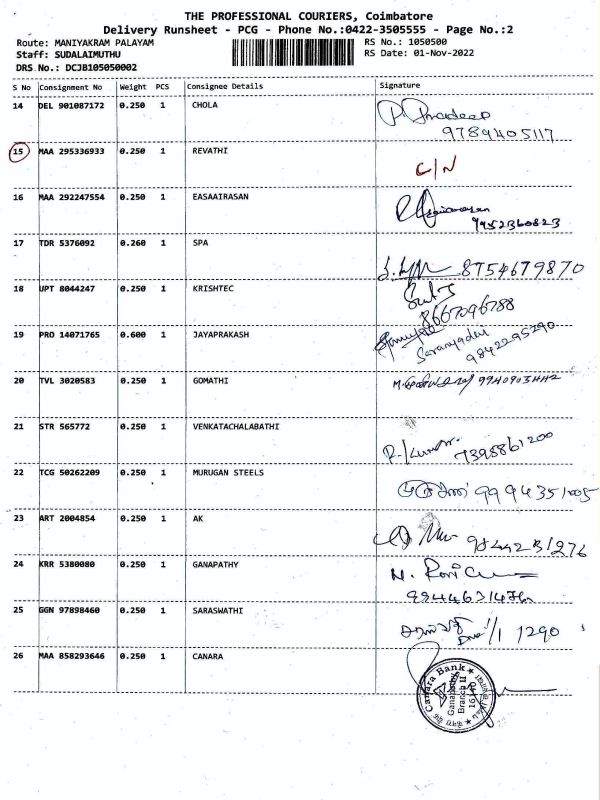 THE PROFESSIONAL COURIERS, Coimbatore
Delivery Runsheet - PCG - Phone No.:0422-3505555 - Page No.:2
Route: MANIYAKRAM PALAYAM RS No.: 1050500
Staff: SUDALAIMUTHU RS Date: 01-Nov-2022
DRS No.: DCJB105050002
S No Consignment No Weight PCS Consignee Details Signature
14 DEL 901087172 0.250 1 CHOLA P. Pradeep
9789405117
15 MAA 295336933 0.250 1 REVATHI
C/N
16 MAA 292247554 0.250 1 EASAAIRASAN
9952360823
17 TDR 5376092 0.260 1 SPA
8754679870
18 UPT 8044247 0.250 1 KRISHTEC
8667096788
19 PRO 14071765 0.600 1 JAYAPRAKASH
Saranyadevi
9842295290
20 TVL 3020583 0.250 1 GOMATHI
21 STR 565772 0.250 1 VENKATACHALABATHI
R. Kumar
7398861200
22 TCG 50262209 0.250 1 MURUGAN STEELS
9994351005
23 ART 2004854 0.250 1 AK
9844231276
24 KRR 5380080 0.250 1 GANAPATHY
25 GGN 97898460 0.250 1 SARASWATHI
1290
26 MAA 858293646 0.250 1 CANARA
Canara Bank
Ganapathy
Branch II